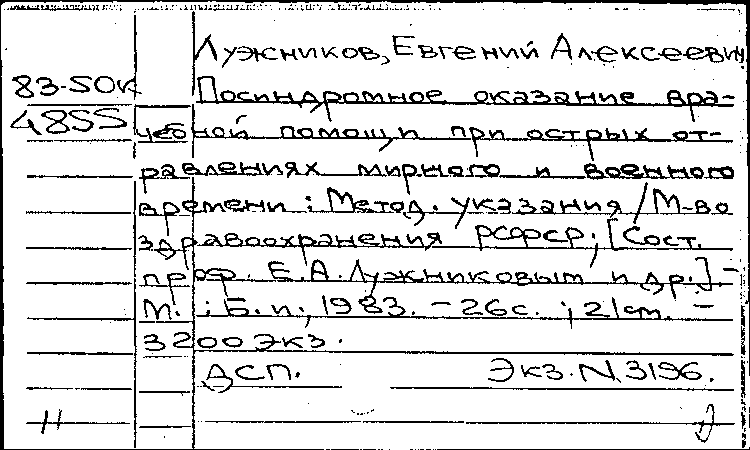 Лужников, Евгений Алексеевич
83-50к
Посиндромное оказание вра-
4855
чебной помощи при острых от-
равлениях мирного и военного
времени : Метод. указания / М-во
здравоохранения РСФСР; [Сост.
проф. Е.А. Лужниковым и др.]. -
М. : Б.и., 1983. - 26с. ; 21 см. -
3200 экз.
ДСП. Экз. N 3196.